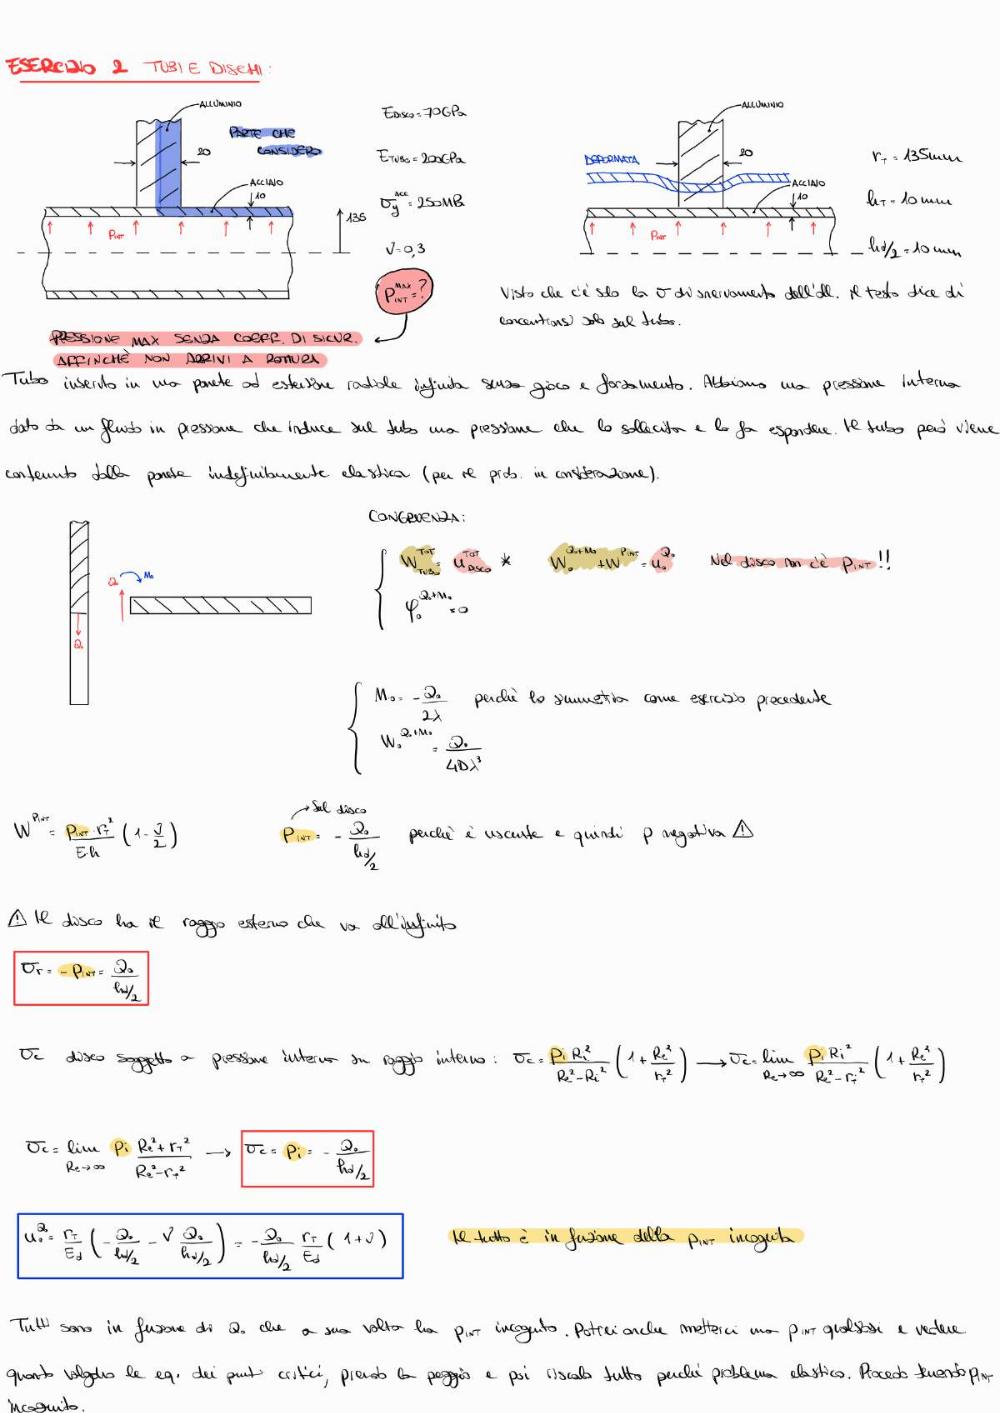 ESERCIZIO 2 TUBI E DISCHI:
ALLUMINIO
PARTE CHE
CONSIDERO
20
ACCIAIO
10
135
PINT
E DISCO = 70GPa
E TUBO = 200GPa
σy^ACC = 250MPa
ν = 0,3
PINT^MAX = ?
PRESSIONE MAX SENZA COEFF. DI SICUR.
AFFINCHÈ NON ARRIVI A ROTTURA
ALLUMINIO
DEFORMATA
20
ACCIAIO
10
PINT
rT = 135mm
hT = 10 mm
hd/2 = 10 mm
Visto che c'è solo la σ di snervamento dell'all. il testo dice di
concentrarsi solo sul tubo.
Tubo inserito in una parete ad estensione radiale infinita senza gioco e forzamento. Abbiamo una pressione interna
dato da un fluido in pressione che induce sul tubo una pressione che lo sollecita e lo fa espandere. Il tubo però viene
contenuto dalla parete indefinitamente elastica (per il prob. in considerazione).
CONGRUENZA:
W TUBO^TOT = u DISCO^TOT * W0^Q0+M0 + W^PINT = u0^Q0 Nel disco non c'è PINT!!
φ0^Q0+M0 = 0
Q0 M0
Q0
M0 = - Q0/2λ perché ho simmetria come esercizio precedente
W0^Q0+M0 = Q0/4Dλ³
W^PINT = PINT · rT²/Eh (1 - ν/2)
Sul disco
PINT = - Q0/hd/2 perché è uscente e quindi p negativa ⚠
⚠ Il disco ha il raggio esterno che va all'infinito
σr = - PINT = Q0/hd/2
σc disco soggetto a pressione interna su raggio interno: σc = Pi Ri²/Re²-Ri² (1 + Re²/rT²) → σc = lim Re→∞ Pi Ri²/Re²-rT² (1 + Re²/rT²)
σc = lim Re→∞ Pi Re²+rT²/Re²-rT² → σc = Pi = - Q0/hd/2
u0^Q0 = rT/Ed (- Q0/hd/2 - ν Q0/hd/2) = - Q0/hd/2 rT/Ed (1+ν)
Il tutto è in funzione della PINT incognita
Tutti sono in funzione di Q0 che a sua volta ha PINT incognito. Potrei anche metterci una PINT qualsiasi e vedere
quanto valgono le eq. dei punti critici, prendo la peggio e poi riscalo tutto perché problema elastico. Procedo tenendo PINT
incognita.